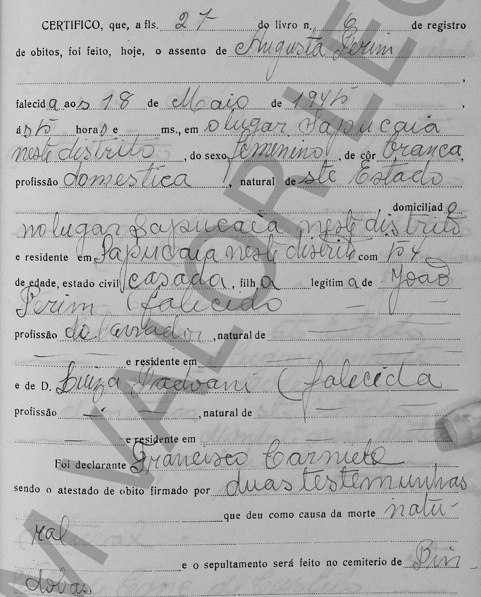 CERTIFICO, que, a fls. 27 do livro n. 6 de registro
de obitos, foi feito, hoje, o assento de Augusta Perim
falecida aos 18 de Maio de 1945,
ás 5 horas e ms., em o lugar Sapucaia
neste distrito, do sexo feminino, de côr branca,
profissão domestica, natural de ste Estado
domiciliada
no lugar Sapucaia neste distrito
e residente em Sapucaia neste distrito com 54
de edade, estado civil casada, filha legitima de João
Perim (falecido
profissão do lavrador, natural de
e residente em
e de D. Luiza Padvani (falecida
profissão, natural de
e residente em
Foi declarante Francisco Carniele
sendo o atestado de obito firmado por duas testemunhas
que deu como causa da morte natu-
ral
e o sepultamento será feito no cemiterio de Pin
dobas
M VALOR LEG